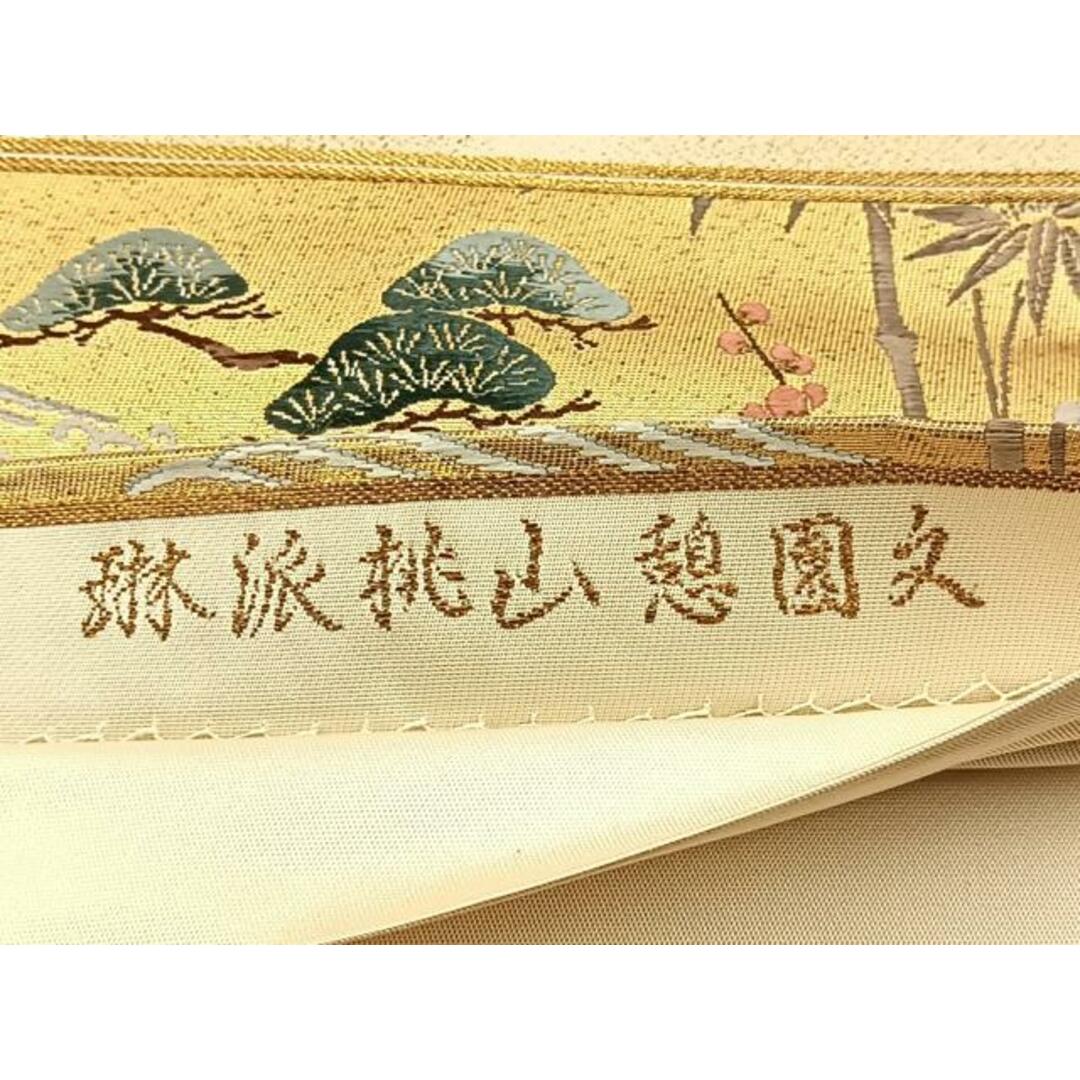 琳派桃山憩園文